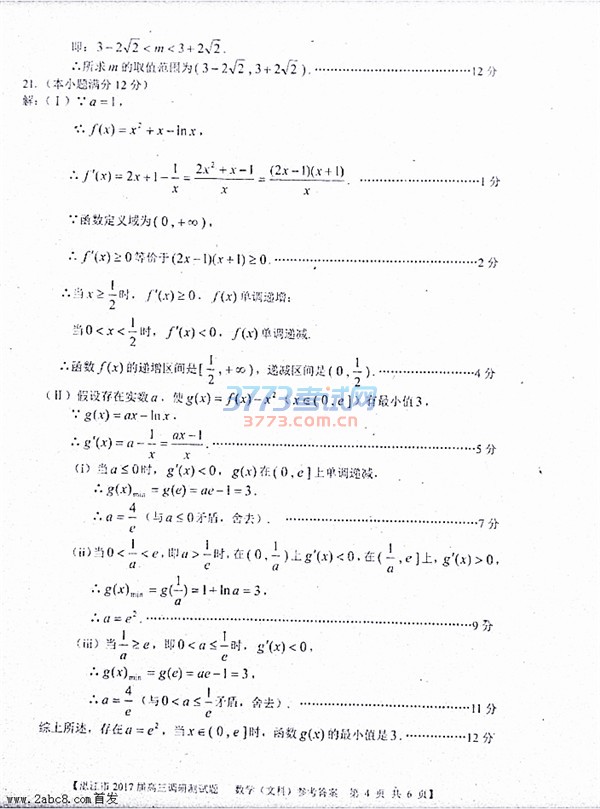 即: 3-2√2 < m < 3+2√2.
∴所求 m 的取值范围为(3-2√2, 3+2√2). ……………………12 分
21. (本小题满分 12 分)
解: (Ⅰ) ∵ a=1,
∴ f(x) = x² + x - ln x,
∴ f′(x) = 2x+1-1/x = (2x²+x-1)/x = (2x-1)(x+1)/x. ……………………1 分
∵函数定义域为(0, +∞),
∴ f′(x) ≥ 0 等价于 (2x-1)(x+1) ≥ 0. ……………………2 分
∴当 x ≥ 1/2 时, f′(x) ≥ 0, f(x) 单调递增;
当 0 < x < 1/2 时, f′(x) < 0, f(x) 单调递减.
∴函数 f(x) 的递增区间是[1/2, +∞), 递减区间是(0, 1/2). ……………………4 分
(Ⅱ) 假设存在实数 a, 使 g(x) = f(x) - x² (x∈(0, e]) 有最小值 3,
∵ g(x) = ax - ln x,
∴ g′(x) = a - 1/x = (ax-1)/x. ……………………5 分
(i) 当 a ≤ 0 时, g′(x) < 0, g(x) 在 (0, e] 上单调递减,
∴ g(x)min = g(e) = ae - 1 = 3.
∴ a = 4/e (与 a ≤ 0 矛盾, 舍去). ……………………7 分
(ii) 当 0 < 1/a < e, 即 a > 1/e 时, 在 (0, 1/a) 上 g′(x) < 0, 在 (1/a, e] 上, g′(x) > 0,
∴ g(x)min = g(1/a) = 1 + ln a = 3,
∴ a = e². ……………………9 分
(iii) 当 1/a ≥ e, 即 0 < a ≤ 1/e 时, g′(x) < 0,
∴ g(x)min = g(e) = ae - 1 = 3,
∴ a = 4/e (与 0 < a ≤ 1/e 矛盾, 舍去). ……………………11 分
综上所述, 存在 a = e², 当 x∈(0, e] 时, 函数 g(x) 的最小值是 3. ……………12 分
【湛江市 2017 届高三调研测试题 数学 (文科) 参考答案 第 4 页 共 6 页】
3773考试网
3773.com.cn
www.2abc8.com 首发